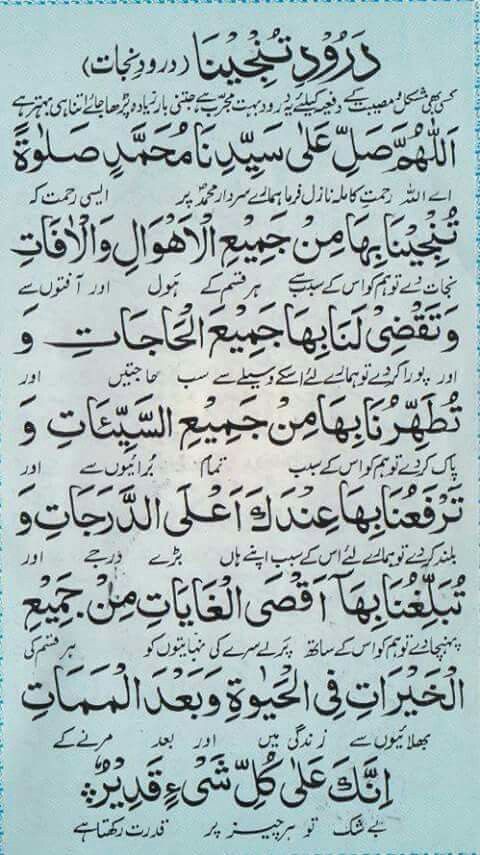 دَرُوْد تُنْجِیْنَا (درودِ نجات)
کسی بھی مشکل و مصیبت کے دفعیہ کیلئے یہ درود بہت مجرب ہے جتنی بار زیادہ پڑھا جائے اتنا ہی بہتر ہے
اَللّٰهُمَّ صَلِّ عَلٰى سَيِّدِنَا مُحَمَّدٍ صَلٰوةً
اے اللہ رحمت کاملہ نازل فرما ہمارے سردار محمدؐ پر ایسی رحمت کہ
تُنْجِيْنَا بِهَا مِنْ جَمِيْعِ الْاَهْوَالِ وَالْاٰفَاتِ
نجات دے تو ہم کو اس کے سبب سے ہر قسم کے ہول اور آفتوں سے
وَتَقْضِیْ لَنَا بِهَا جَمِيْعَ الْحَاجَاتِ وَ
اور پورا کر دے تو ہمارے لئے اسکے وسیلے سے سب حاجتیں اور
تُطَهِّرُنَا بِهَا مِنْ جَمِيْعِ السَّيِّئَاتِ وَ
پاک کر دے تو ہم کو اس کے سبب تمام بُرائیوں سے اور
تَرْفَعُنَا بِهَا عِنْدَكَ اَعْلَى الدَّرَجَاتِ وَ
بلند کر دے تو ہمارے لئے اس کے سبب اپنے ہاں بڑے درجے اور
تُبَلِّغُنَا بِهَآ اَقْصَى الْغَايَاتِ مِنْ جَمِيْعِ
پہنچا دے تو ہم کو اس کے ساتھ پرلے سرے کی نہایتوں کو ہر قسم کی
الْخَيْرَاتِ فِی الْحَيٰوةِ وَبَعْدَ الْمَمَاتِ
بھلائیوں سے زندگی میں اور بعد مرنے کے
اِنَّكَ عَلٰى كُلِّ شَیْءٍ قَدِيْرٌ
بے شک تو ہر چیز پر قدرت رکھتا ہے